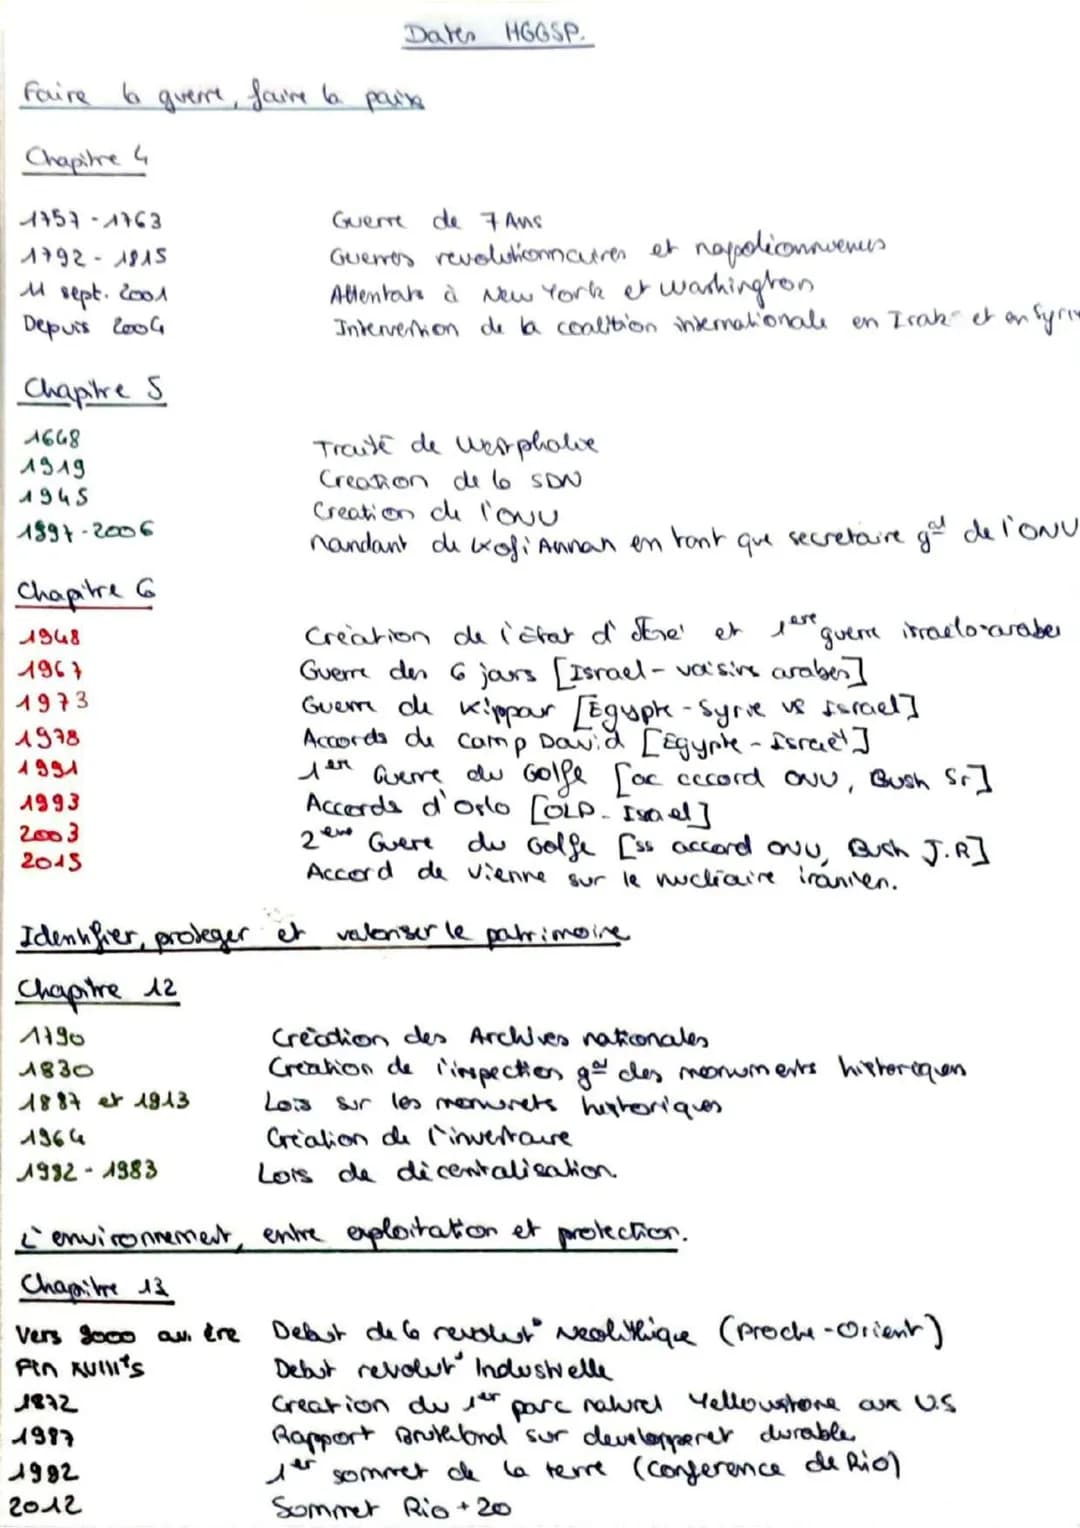 Dates HGGSP.
Faire la guerre, faire la paix
Chapitre 4
1757-1763 Guerre de 7 Ans
1792-1815 Guerres revolutionnaires et napoléonniennes
11 sept. 2001 Attentats à New York et Washington
Depuis 2004 Intervention de la coalition internationale en Irak et en Syrie
Chapitre 5
1648 Traité de Westphalie
1919 Creation de la SDN
1945 Creation de l'ONU
1997-2006 Mandant de Kofi Annan en tant que secretaire gal de l'ONU
Chapitre 6
1948 Création de l'État d' et 1ere guerre israelo-arabes
1967 Guerre des 6 jours [Israel - voisins arabes]
1973 Guerre de Kippour [Egypte - Syrie vs Israel]
1978 Accords de Camp David [Egypte - Israel]
1991 1er Guerre du Golfe [ac accord ONU, Bush Sr]
1993 Accords d'Oslo [OLP - Israel]
2003 2eme Guere du Golfe [ss accord ONU, Bush J.R]
2015 Accord de Vienne sur le nucléaire iranien.
Identifier, proteger et valoriser le patrimoine
Chapitre 12
1790 Création des Archives nationales
1830 Création de l'inspection gal des monuments historiques
1887 et 1913 Lois sur les monuments historiques
1964 Création de l'inventaire
1982-1983 Lois de décentralisation.
L'environnement, entre exploitation et protection.
Chapitre 13
Vers 9000 av. ère Debut de la revolut° Neolithique (Proche-Orient)
Fin XVIIIe s Debut revolut° Industrielle
1872 Creation du 1er parc naturel Yellowstone aux U.S
1987 Rapport Bruthland sur developpement durable
1992 1er sommet de la terre (Conference de Rio)
2012 Sommet Rio + 20